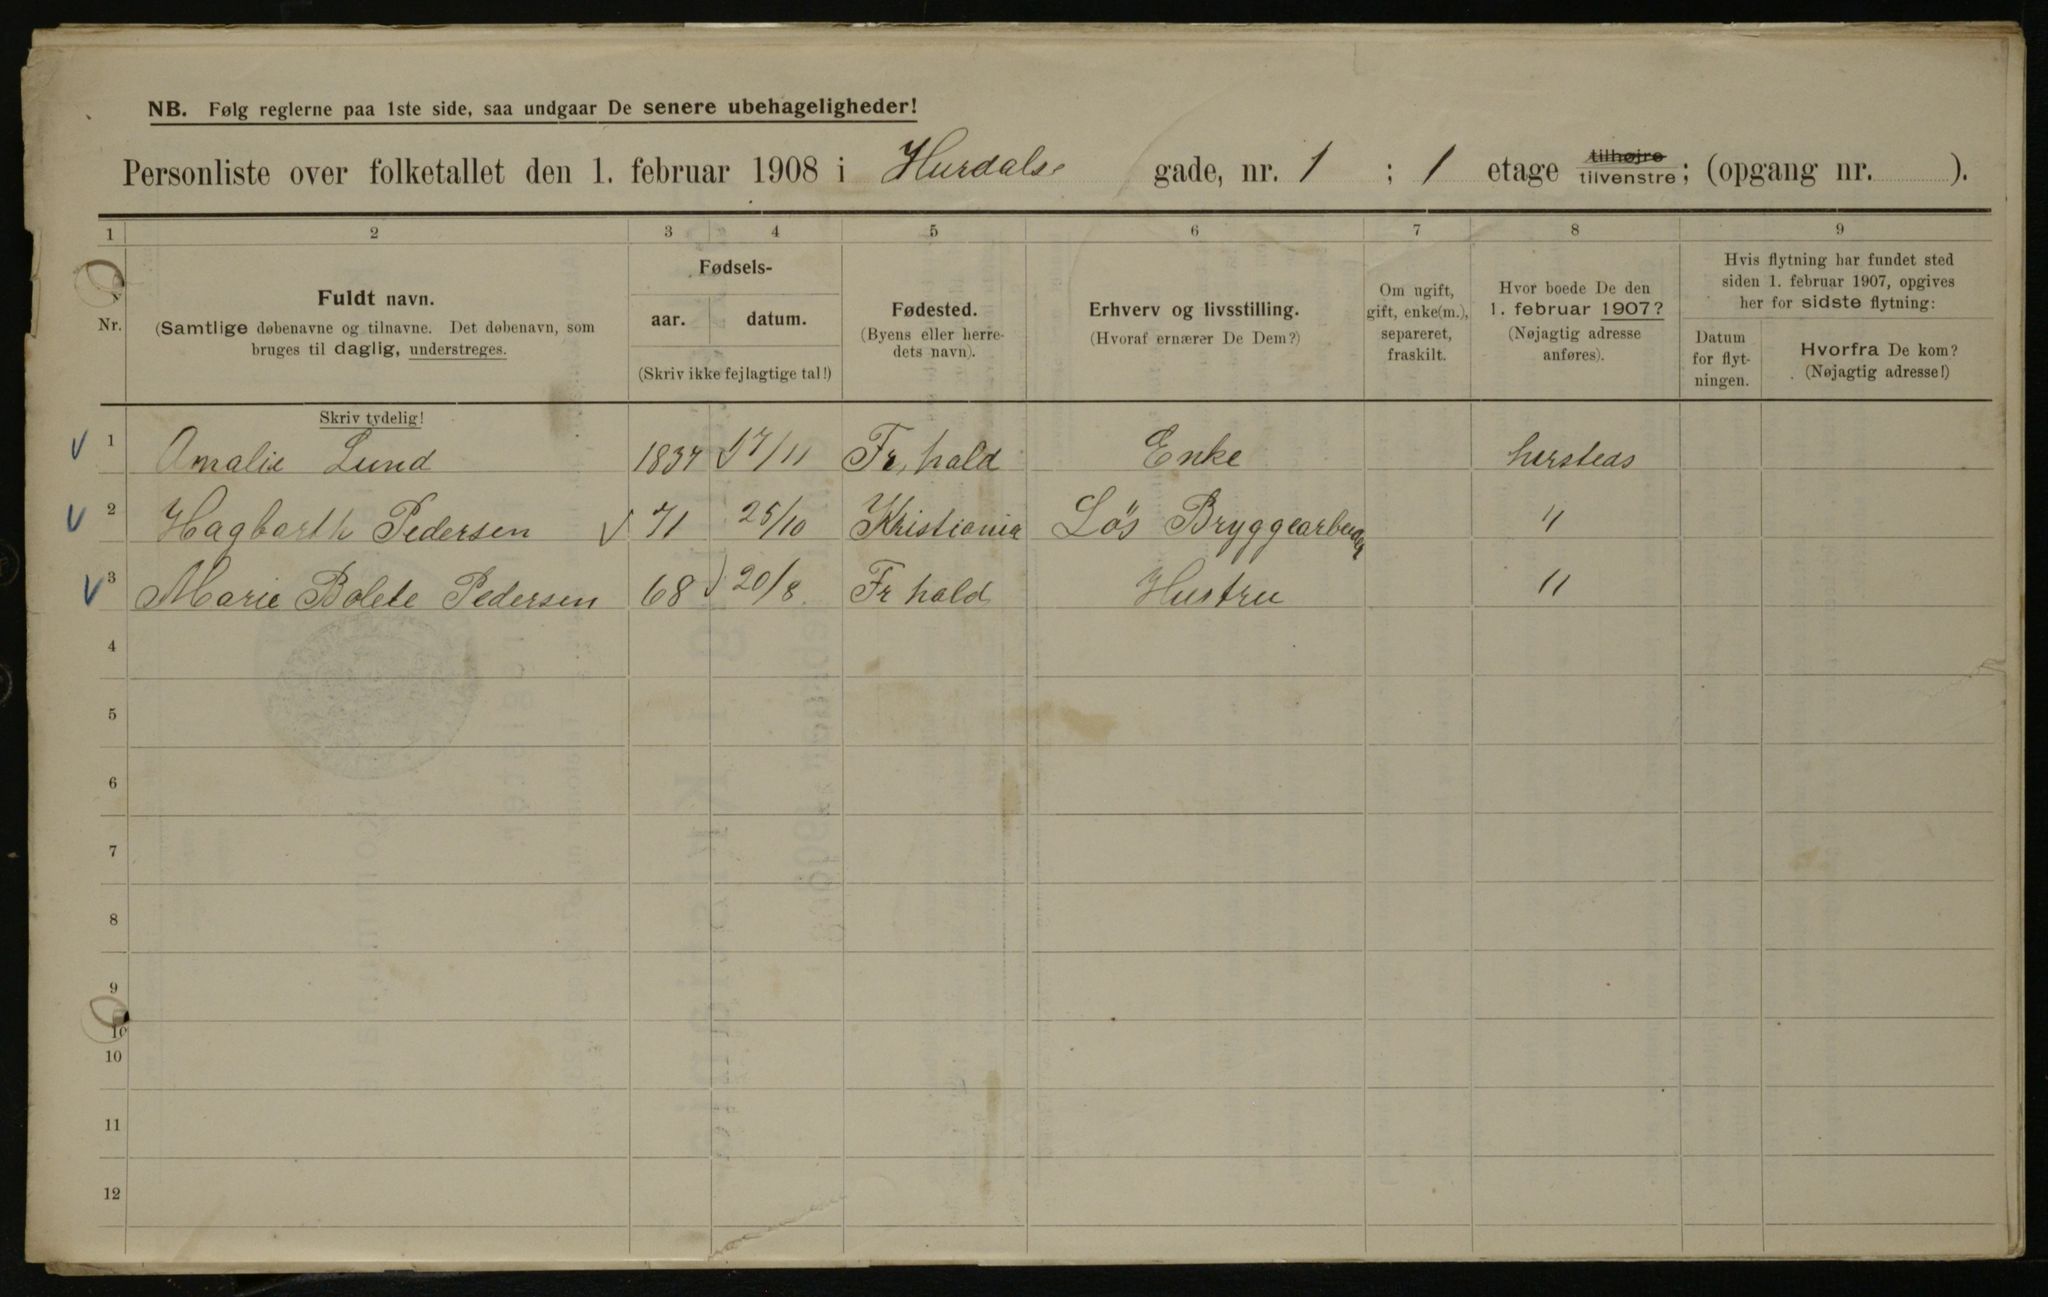 NB. Følg reglerne paa 1ste side, saa undgaar De senere ubehageligheder!
Personliste over folketallet den 1. februar 1908 i Hurdalse gade, nr. 1 ; 1 etage tilhøjre tilvenstre; (opgang nr. ).
1 2 3 4 5 6 7 8 9
Nr.
Fuldt navn.
(Samtlige døbenavne og tilnavne. Det døbenavn, som
bruges til daglig, understreges.
Skriv tydelig!
Fødsels-
aar. datum.
(Skriv ikke fejlagtige tal!)
Fødested.
(Byens eller herre-
dets navn).
Erhverv og livsstilling.
(Hvoraf ernærer De Dem?)
Om ugift,
gift, enke(m.),
separeret,
fraskilt.
Hvor boede De den
1. februar 1907?
(Nøjagtig adresse
anføres).
Hvis flytning har fundet sted
siden 1. februar 1907, opgives
her for sidste flytning:
Datum
for flyt-
ningen.
Hvorfra De kom?
(Nøjagtig adresse!)
1 Amalie Lund 1834 17/11 Fr, hald Enke hersteds
2 Hagbarth Pedersen 71 25/10 Kristiania Løs Bryggearbeider "
3 Marie Bolete Pedersen 68 20/8 Fr hald Hustru "
4
5
6
7
8
9
10
10
11
12